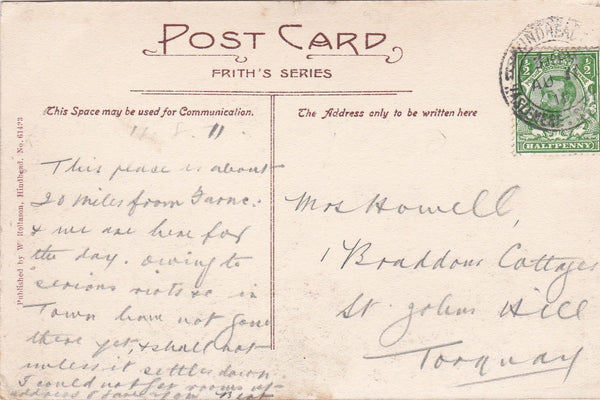 POST CARD
FRITH'S SERIES
This Space may be used for Communication.
The Address only to be written here
HINDHEAD
HASLEMERE
AU 11
11
½
½
HALFPENNY
Published by W. Rollason, Hindhead. No. 61473
11.8.11
This place is about
20 miles from
& we are here for
the day. owing to
serious riots &c in
Town have not gone
there yet, & shall not
unless it settles down.
I could not get rooms at
address I gave you.
Mrs Howell,
1 Braddons Cottages
St. Johns Hill
Torquay